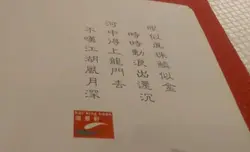 眼似真珠鱗似金
時時動浪出還沉
河中得上龍門去
不嘆江湖歲月深